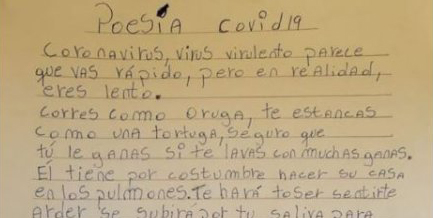 Poesía Covid19
Coronavirus, virus virulento parece
que vas rápido, pero en realidad,
eres lento.
Corres como oruga, te estancas
como una tortuga, seguro que
tú le ganas si te lavas con muchas ganas.
Él tiene por costumbre hacer su casa
en los pulmones. Te hará toser sentirte
arder se subirá por tu saliva para